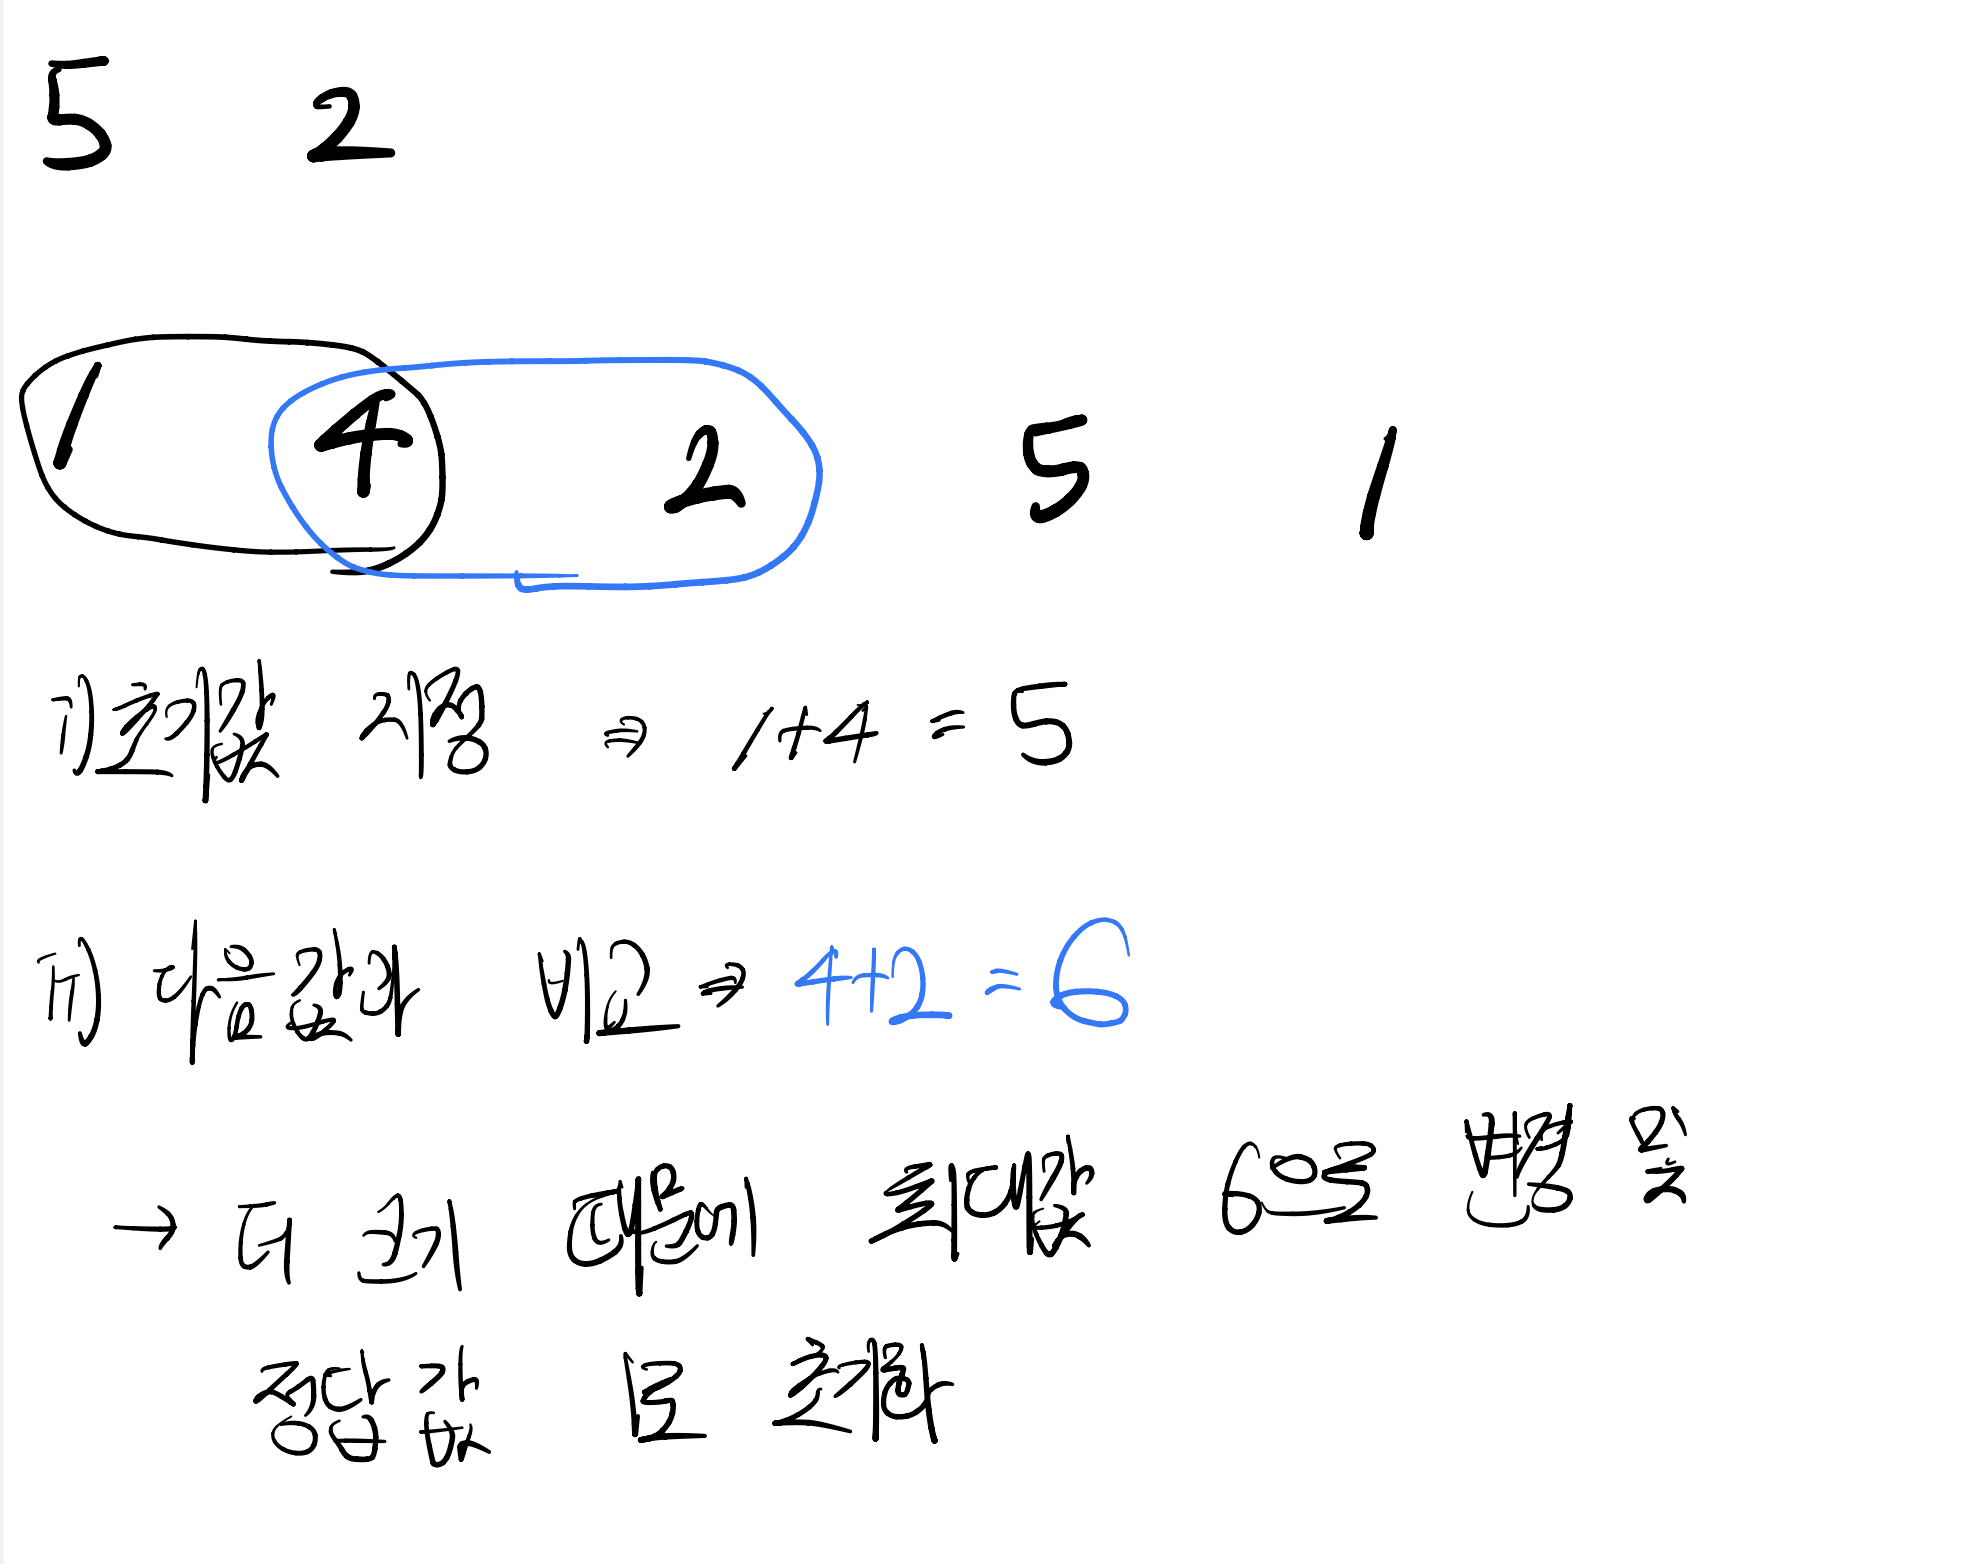 5 2
1 4 2 5 1
i) 초기값 지정 ⇒ 1+4 = 5
ii) 다음값과 비교 ⇒ 4+2 = 6
→ 더 크기 때문에 최대값 6으로 변경 및
정답 값 1로 초기화